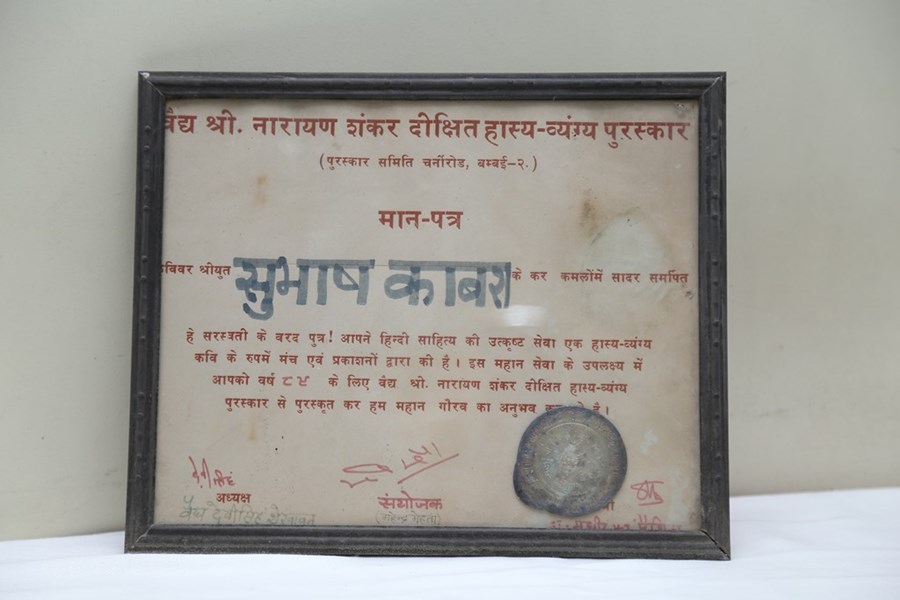 वैद्य श्री. नारायण शंकर दीक्षित हास्य-व्यंग्य पुरस्कार
(पुरस्कार समिति चर्नीरोड, बम्बई-२.)
मान-पत्र
कविवर श्रीयुत सुभाष काबरा के कर कमलोंमें सादर समर्पित
हे सरस्वती के वरद पुत्र! आपने हिन्दी साहित्य की उत्कृष्ट सेवा एक हास्य-व्यंग्य
कवि के रुपमें मंच एवं प्रकाशनों द्वारा की है। इस महान सेवा के उपलक्ष्य में
आपको वर्ष ८४ के लिए वैद्य श्री. नारायण शंकर दीक्षित हास्य-व्यंग्य
पुरस्कार से पुरस्कृत कर हम महान गौरव का अनुभव है।
अध्यक्ष संयोजक
वैद्य देवीसिंह शेखावत